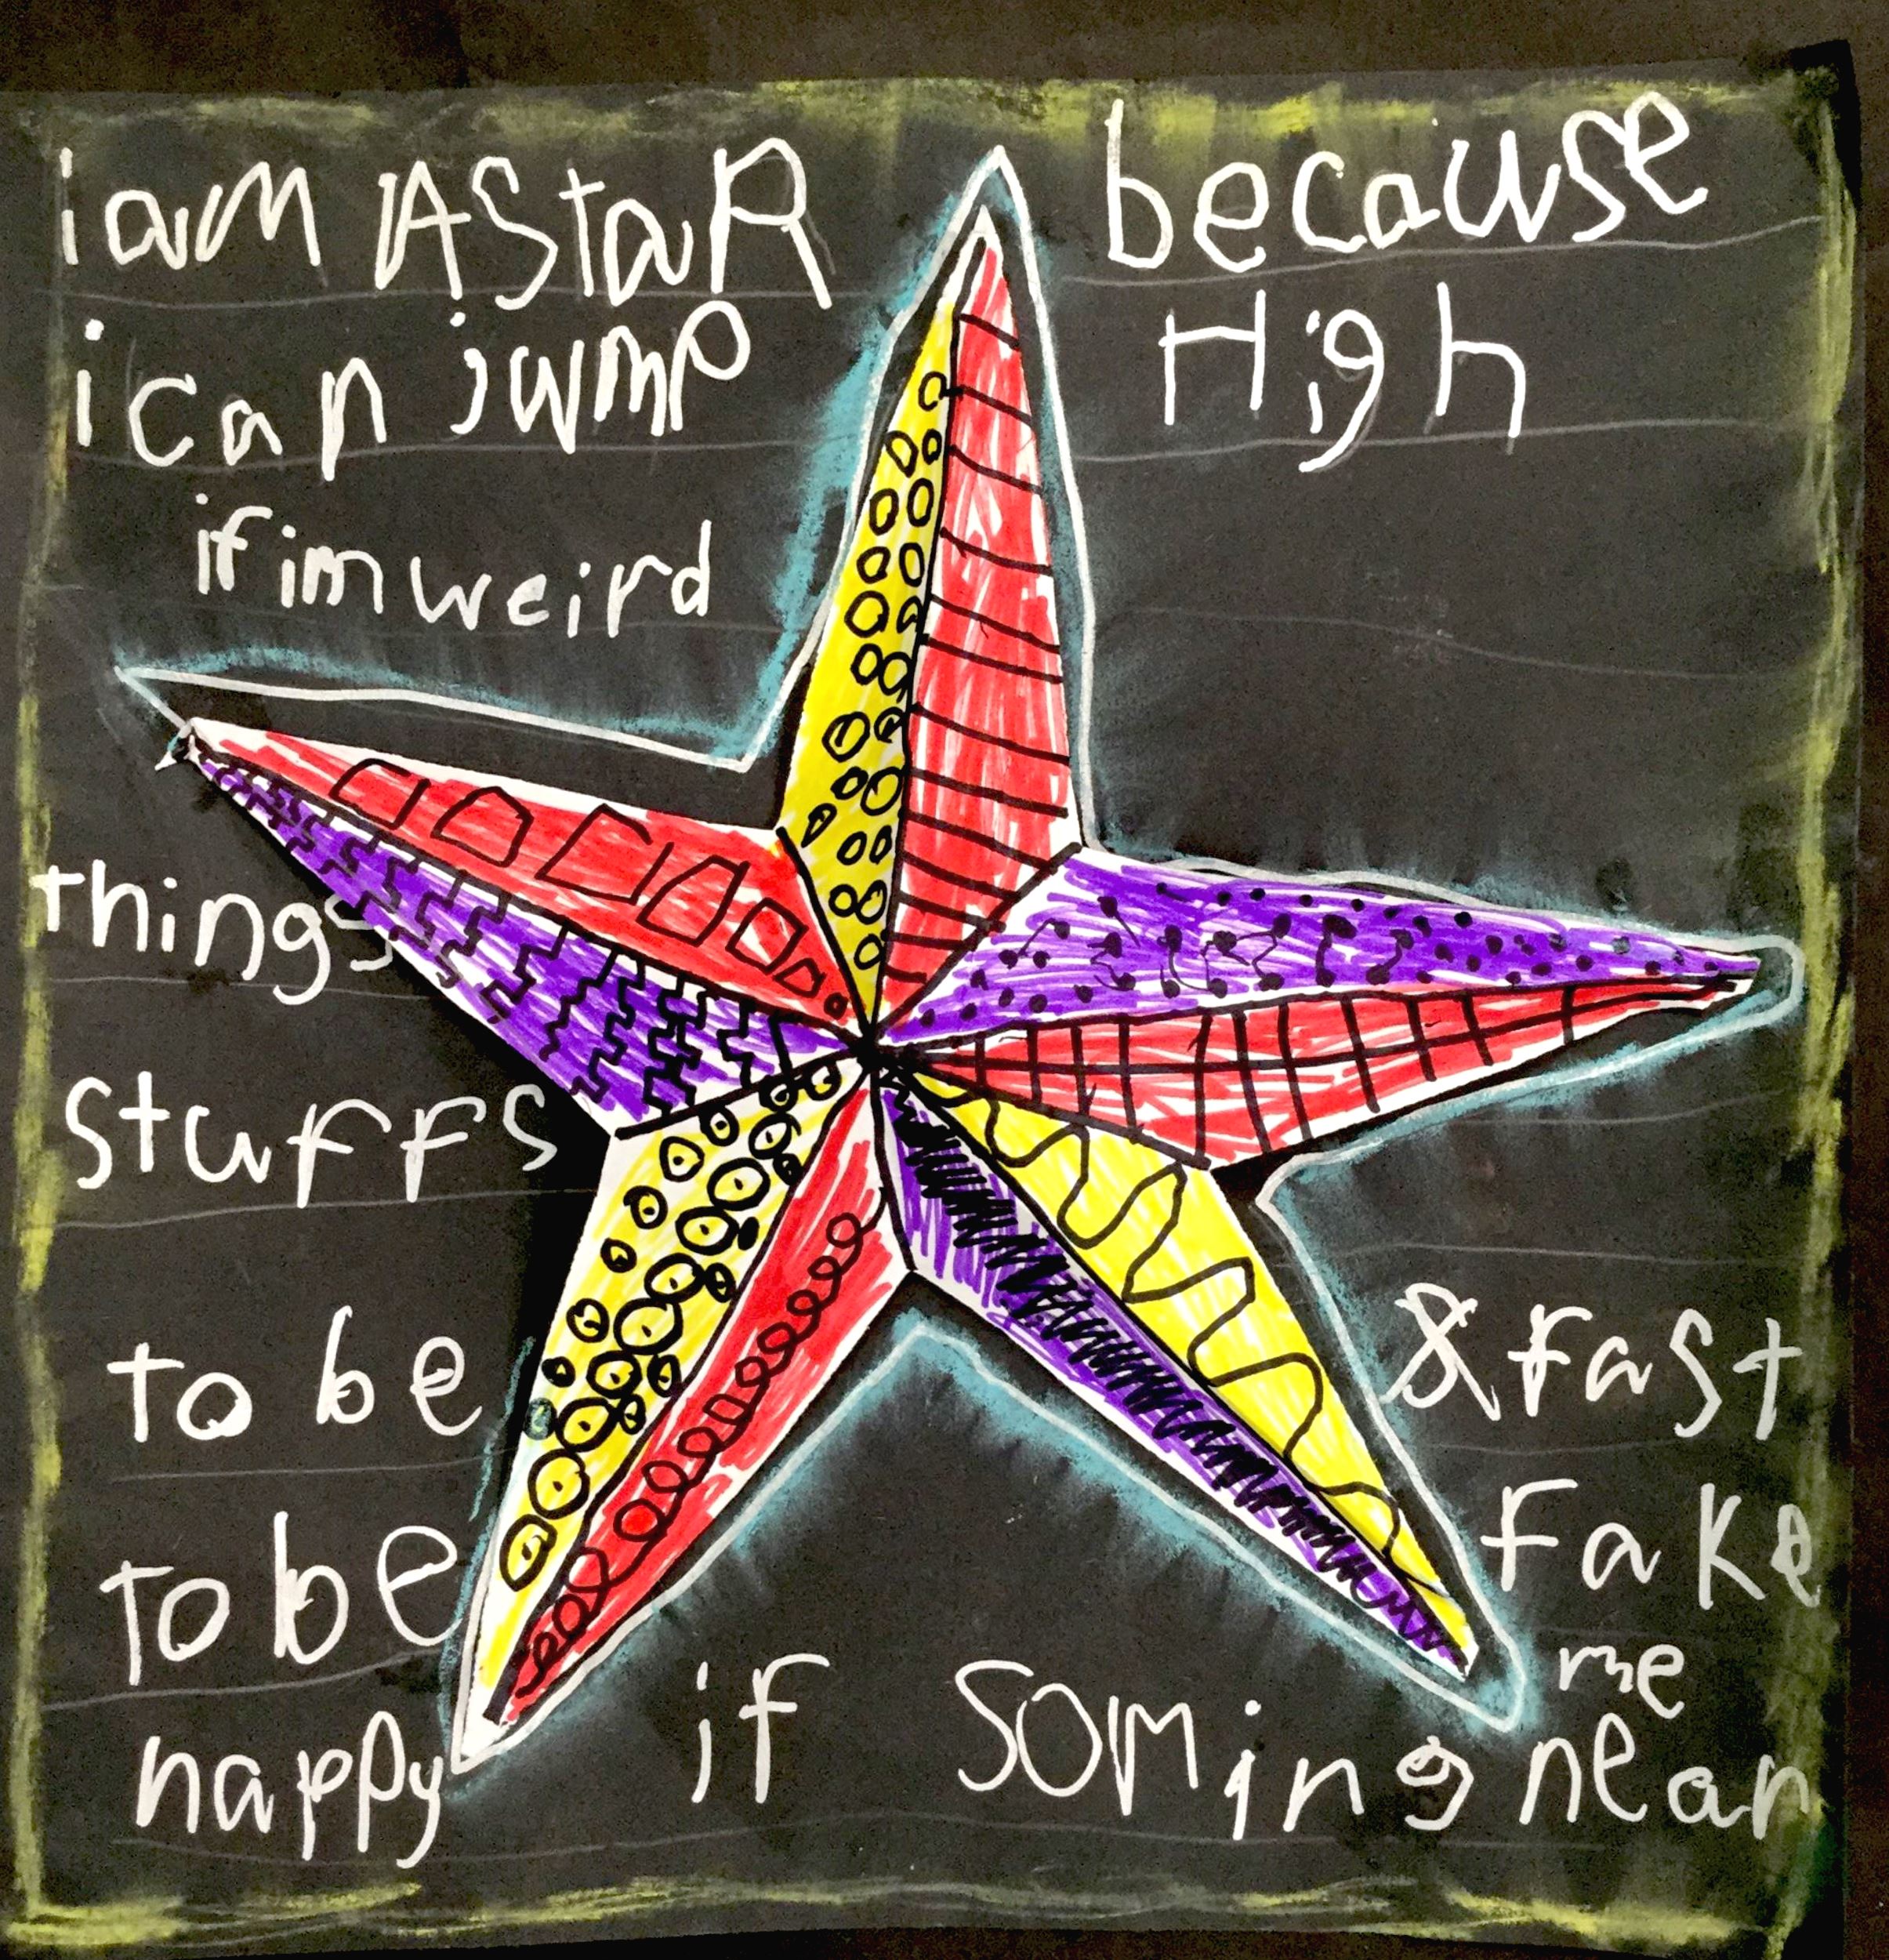 i am A StaR because
i can jump High
if im weird
things
stuffs
to be & fast
to be fake
me
happy if soming near